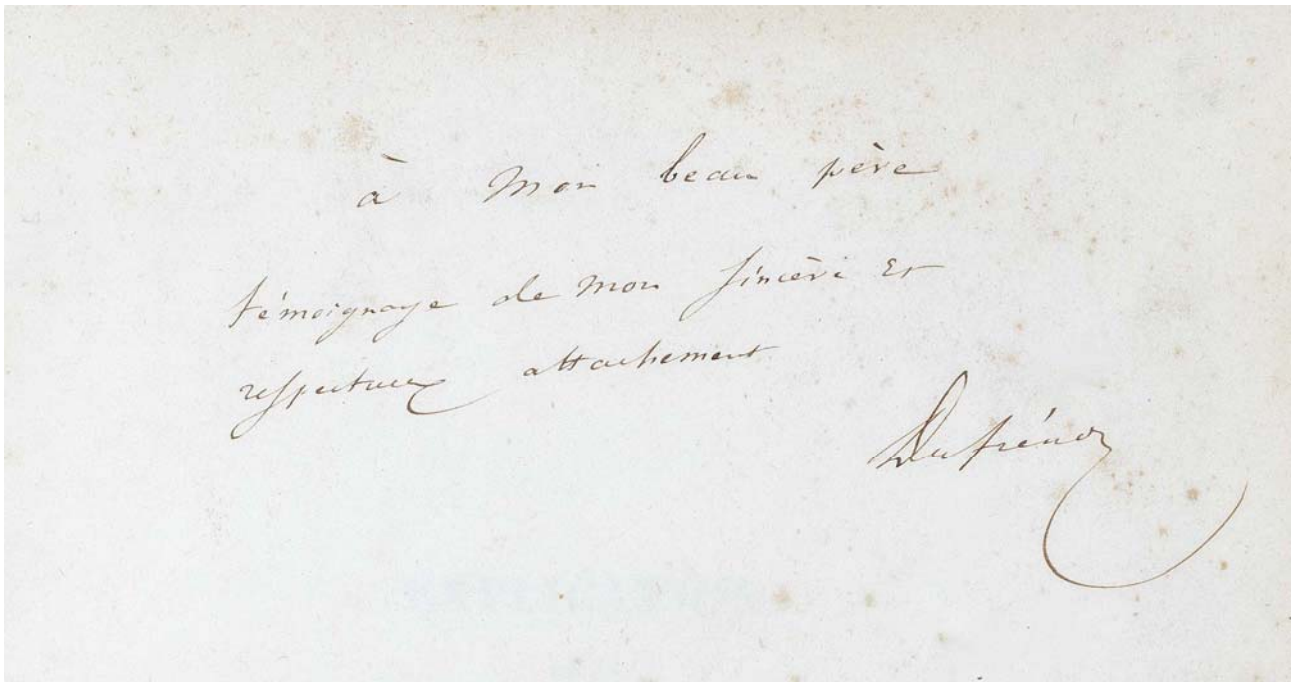 à Mon beau père
témoignage de mon sincère Et
respectueux attachement
Dufrénoy